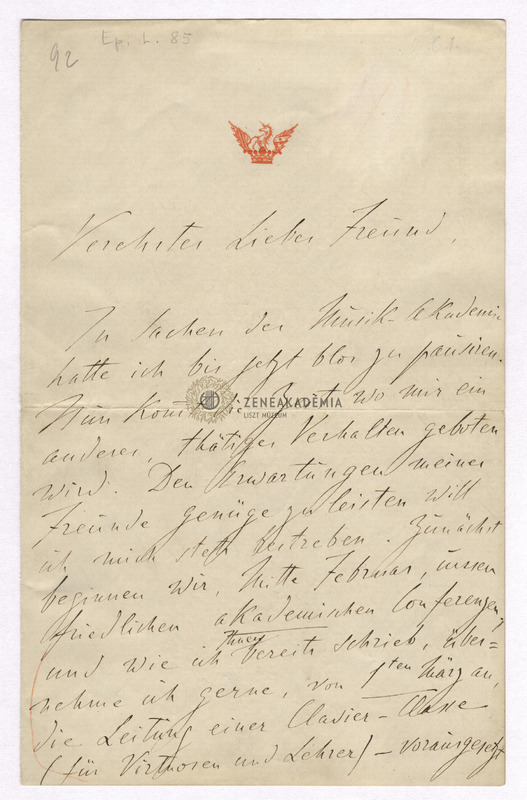 92
Ep. L. 85
Verehrter Lieber Freund,
In Sachen der Musik-Akademie
hatte ich bis jetzt blos zu pausiren.
Nun kommt die Zeit wo mir ein
ZENEAKADÉMIA
LISZT MÚZEUM
anderes, thätiges Verhalten geboten
wird. Den Erwartungen meiner
Freunde genüge zu leisten will
ich mich stets bestreben. Zunächst
beginnen wir, Mitte Februar, unsren
friedlichen akademischen Conferenzen,
und wie ich Ihnen bereits schrieb, über=
nehme ich gerne, von 1ten März an,
die Leitung einer Clavier-Classe
(für Virtuosen und Lehrer) – vorausgesetzt